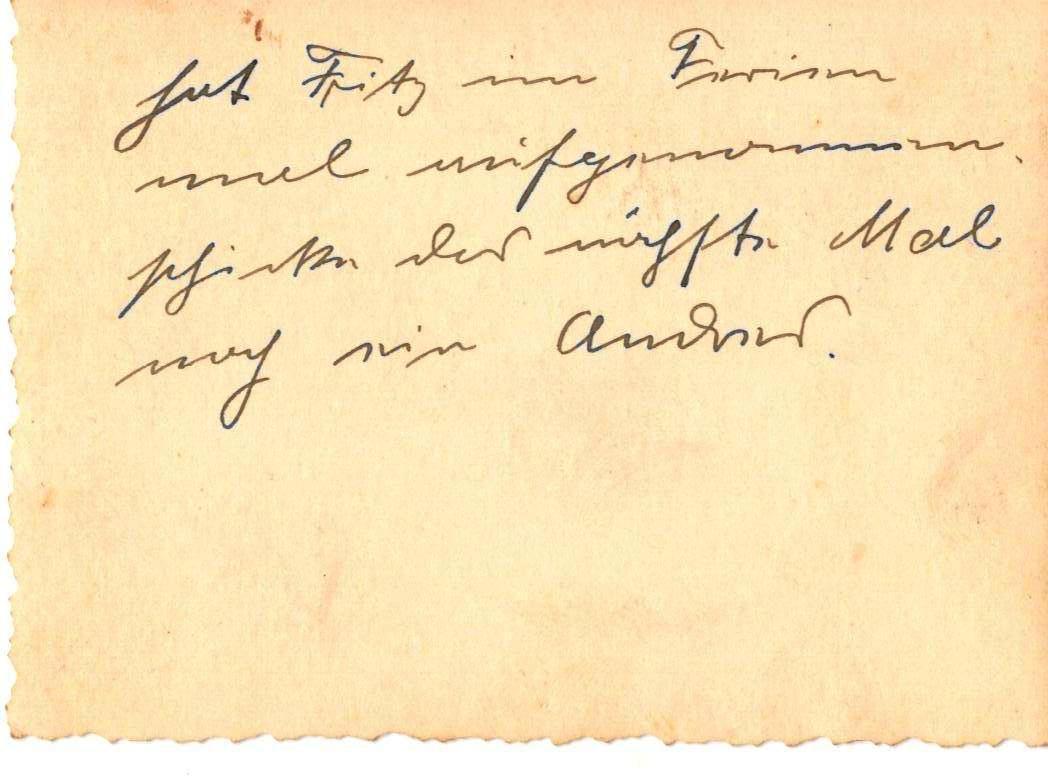 hat Fritz im Freien
mal aufgenommen.
schicke das nächste Mal
noch ein Andres.